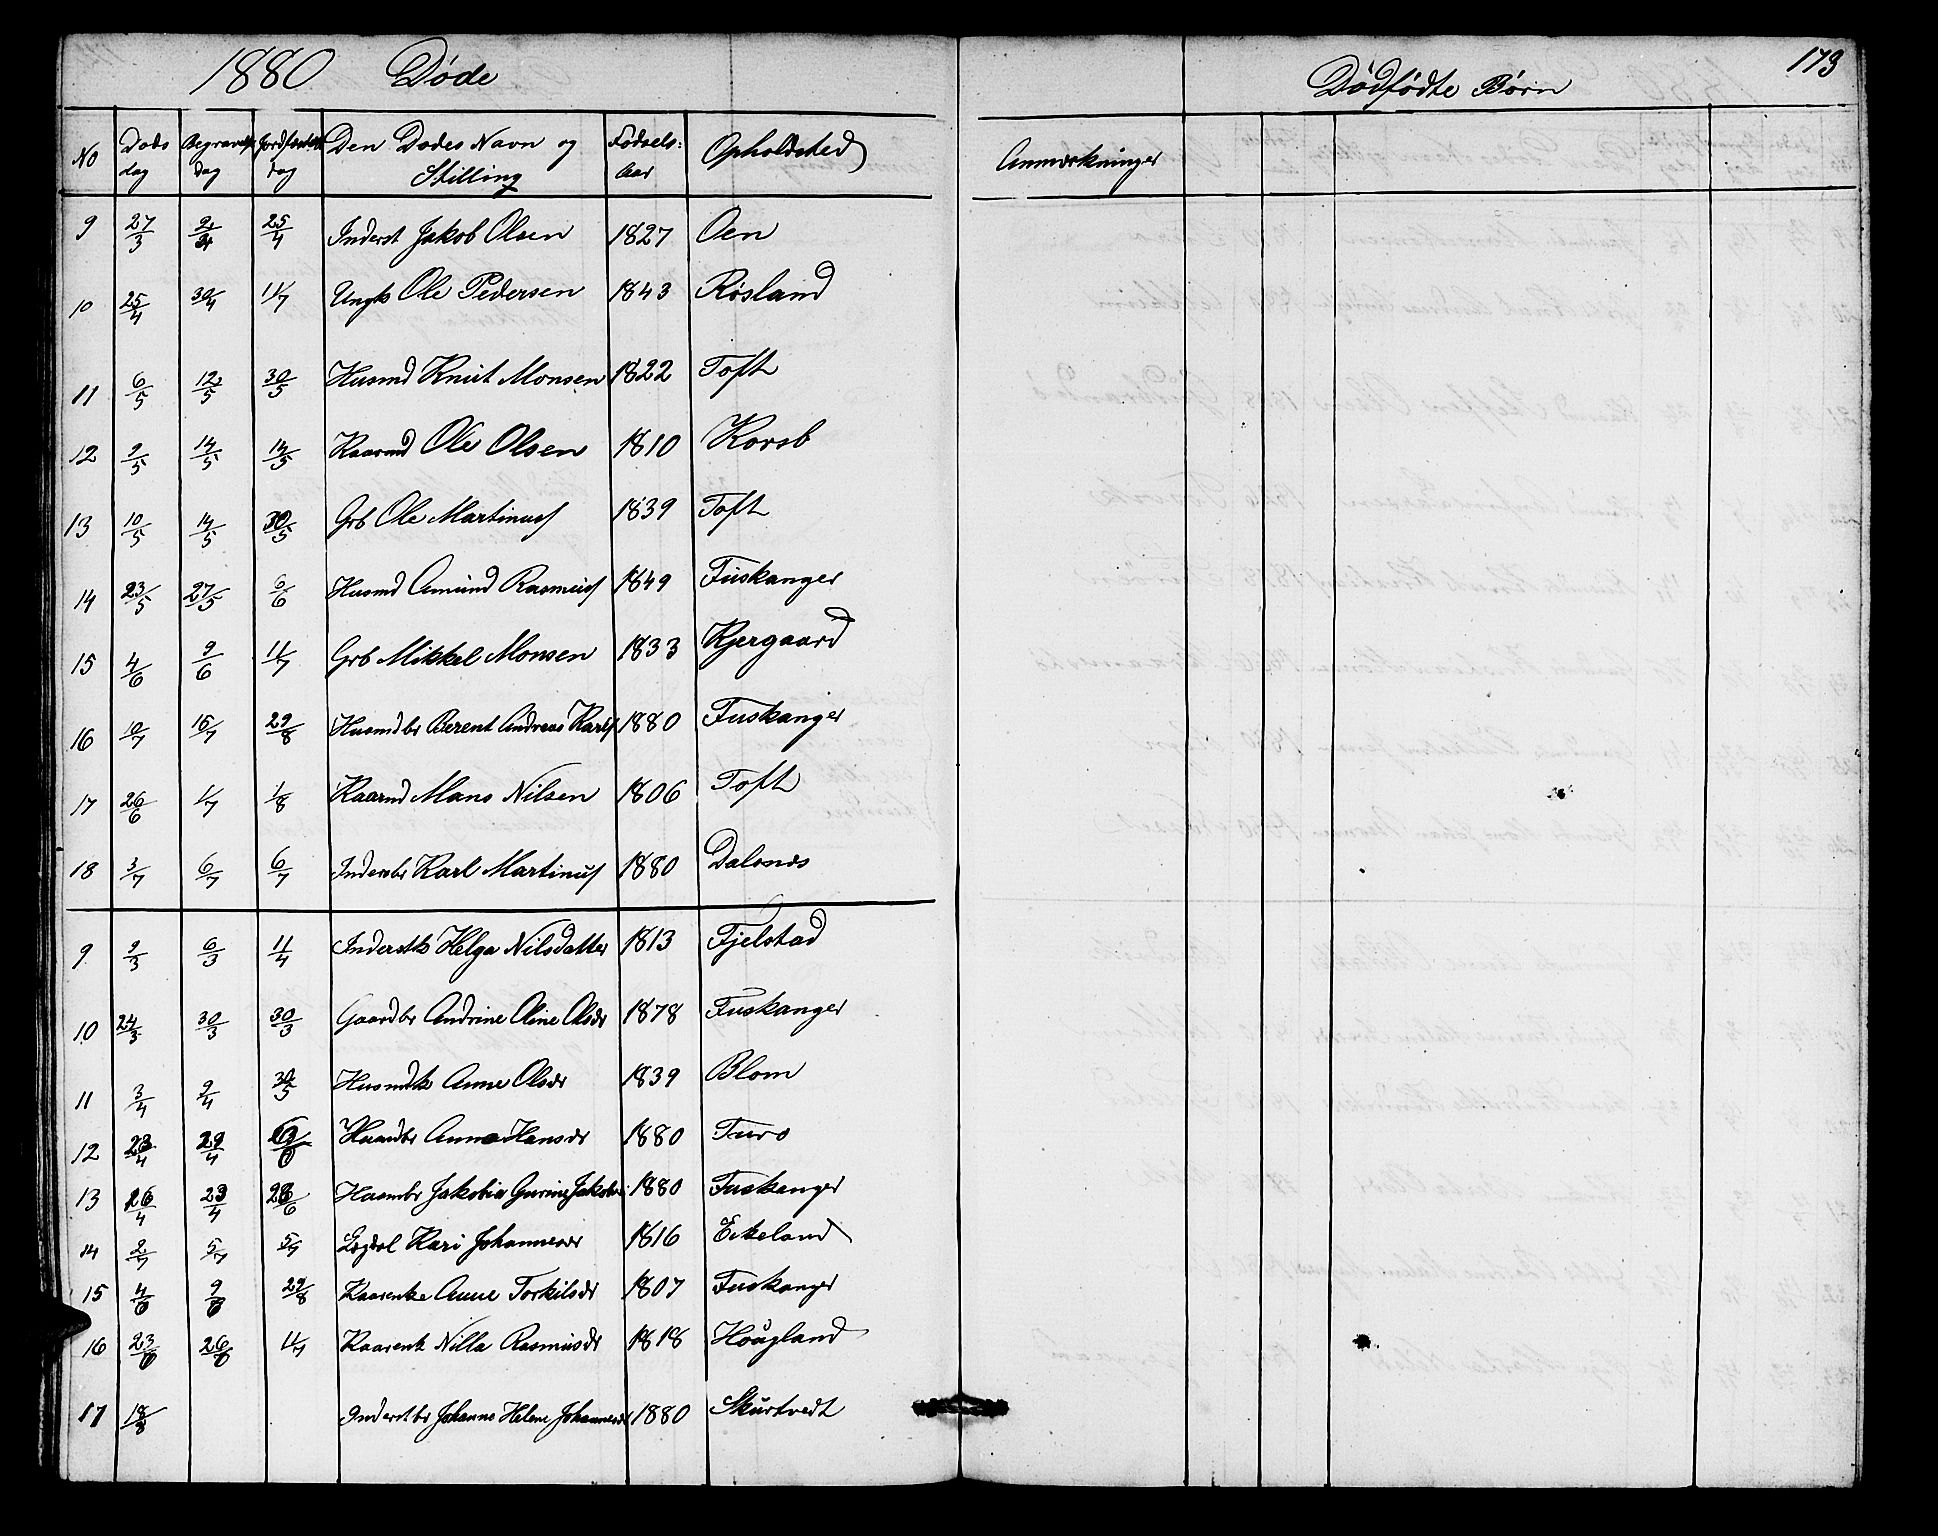 1880 Døde
Dødfødte Børn
173
No Døds dag Begravels dag Jordfæstels dag Den Dødes Navn og Stilling Fødsels: Aar Opholdsted Anmærkninger
9 27/3 2/4 25/4 Inderst Jakob Olsen 1827 Oen
10 25/4 30/4 11/7 Ungk Ole Pedersen 1843 Røsland
11 6/5 12/5 30/5 Husmd Knut Monsen 1822 Toft
12 9/5 14/5 14/5 Kaarmd Ole Olsen 1810 Korsb
13 10/5 14/5 30/5 Grb Ole Martinus 1839 Toft
14 23/5 27/5 6/6 Husmd Amund Rasmus 1849 Fuskanger
15 4/6 9/6 11/7 Grb Mikkel Monsen 1833 Kjergaard
16 10/7 15/7 29/8 Husmdbr Berent Andreas Karls 1880 Fuskanger
17 26/6 1/7 1/8 Kaarmd Mans Nilsen 1806 Toft
18 3/7 6/7 6/7 Inderstbr Karl Martinus 1880 Dalsnæs
9 2/3 6/3 11/4 Inderstk Helga Nilsdatter 1813 Fjelstad
10 24/3 30/3 30/3 Gaardbr Andrine Oline Olsdr 1878 Fuskanger
11 3/4 9/4 30/5 Husmdk Anne Olsdr 1839 Blom
12 23/4 29/4 Anna Hansdr 1880 Turo
13 26/4 29/4 28/6 Husmbr Jakobia Gurine Jakobs 1880 Fuskanger
14 2/7 5/7 5/7 Kari Johannesdr 1816 Eikeland
15 4/6 9/6 29/8 Kaarenke Anne Torkilsdr 1807 Fuskanger
16 23/6 26/6 11/7 Kaarenk Nilla Rasmusdr 1818 Høugland
17 18/8 Inderstbr Johanne Helene Johannesdr 1880 Skurtvedt